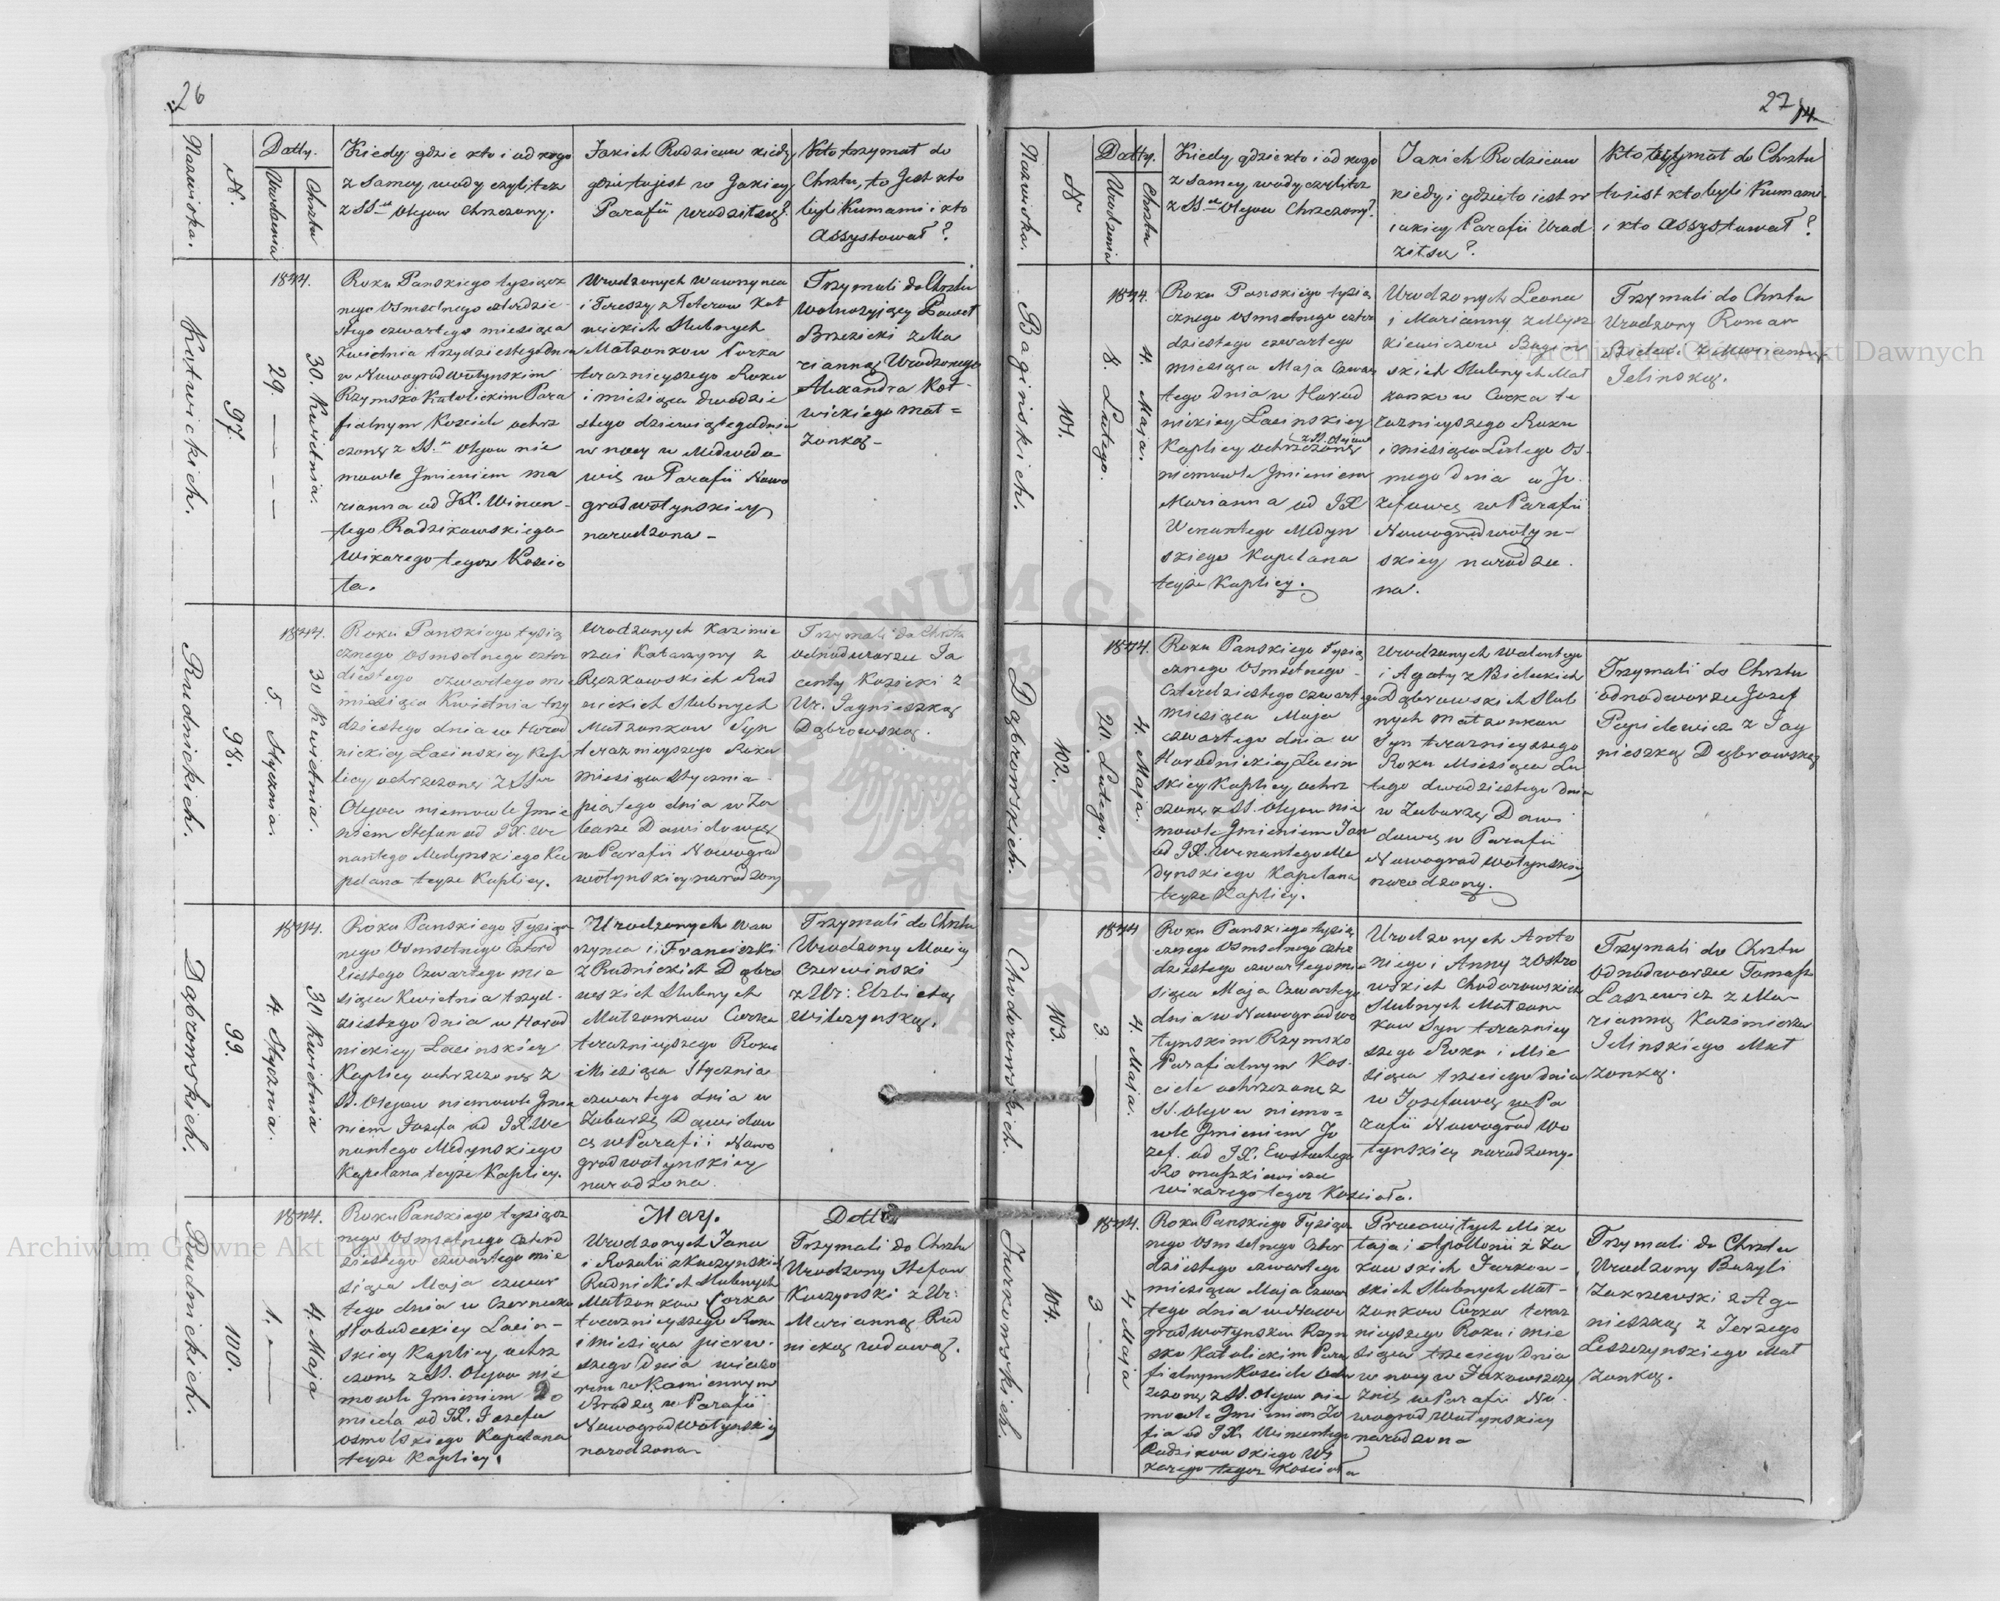 26
Nazwiska.
N.
Datty.
Urodzenia
Chrztu
Kiedy, gdzie kto i od kogo
z samey wody czyli też
z SS. Olejow Chrzczony.
Jakich Rodziców kiedy
gdzie to jest w Jakiey
Parafii urodził się?
Kto trzymał do
Chrztu, to Jest kto
byli Kumami i kto
Assystował?
Kotwickich.
97.
1844.
29.
30. Kwietnia.
Roku Panskiego tysiącz
nego Osmsetnego czterdzie-
stego czwartego miesiąca
Kwietnia trzydziestego dnia
w Nowogrodwołynskim
Rzymsko Katolickim Para
fialnym Kosciele ochrz
czoną z SS. Olejow nie
mowle Imieniem Ma
rianna od JX. Wincen-
tego Radzikowskiego
Wikarego tegoż Koscio
ła.
Urodzonych Wawrzynca
i Teressy z Feterow Kot
wickich Slubnych
Małzonkow Corka
teraznieyszego Roku
i miesiąca dwudzie
stego dziewiątego dnia
w nocy w Medwedo
wie w Parafii Nowo
gradwołynskiey
narodzona-
Trzymali do Chrztu
Wolnożyjący Paweł
Brzezicki z Ma
rianną Urodzonego
Alexandra Kot-
wickiego mał=
żonką-
Rudnickich.
98.
1844.
5. Stycznia.
30 Kwietnia.
Roku Panskiego tysią
cznego osmsetnego czter
dziestego czwartego mie
miesiąca Kwietnia trzy
dziestego dnia w Horod
nickiey Łacinskiey Kap
licy ochrzczono z SS.
Olejow niemowle Imie
niem Stefan od JX. We
nantego Medynskiego Ka
pelana teyże Kaplicy.
Urodzonych Kazimie
rza i Katarzyny z
Ryczkowskich Rud
nickich Slubnych
Małzonkow Syn
teraznieyszego Roku
miesiąca Stycznia
piątego dnia w Za
barze Dawidowcę
w Parafii Nowograd
wołynskiey narodzony
Trzymali do Chrztu
odnodworzec Ja
centy Kosicki z
Ur. Jagnieszką
Dąbrowską.
Dąbrowskich.
99.
1844.
4. Stycznia.
30 Kwietnia
Roku Panskiego Tysiącz
nego Osmsetnego Czterd
ziestego Czwartego mie
siąca Kwietnia trzyd-
ziestego dnia w Horod
nickiey Łacinskiey
Kaplicy ochrzczono z
SS. Olejow niemowle Imie
niem Jozefa od JX. We
nantego Medynskiego
Kapelana teyże Kaplicy.
Urodzonych Waw
rzynca i Franciszki
z Rudnickich Dąbro
wskich Slubnych
Małzonkow Corka
teraznieyszego Roku
i Miesiąca Stycznia
czwartego dnia w
Zabarzę Dawidow
cę w Parafii Nowo
gradwołynskiey
narodzona.
Trzymali do Chrztu
Urodzony Maciey
Czerwinski
z Ur: Elzbietą
Wilczynską.
Rudnickich.
100.
1844.
1.
4. Maja
Roku Panskiego tysiącz
nego Osmsetnego Czterd
ziestego czwartego mie
siąca Maja czwar
tego dnia w Czernicko
słobudeckiey Łacin-
skiey Kaplicy ochrz
czono z SS. Olejow nie
mowle Imieniem Do
micela od JX. Jozefa
Osmolskiego Kapelana
teyże Kaplicy.
May.
Urodzonych Jana
i Rozalii z Kuczynskich
Rudnickich Slubnych
Małzonkow Corka
teraznieyszego Roku
i miesiąca pierw-
szego dnia wieczo
rem w Kamiennym
Brodzie w Parafii
Nowogradwołynskiey
narodzona-
Detto
Trzymali do Chrztu
Urodzony Stefan
Kuczynski z Ur:
Marianną Rud
nicką wdową.
27
14
Nazwiska.
N
Datty.
Urodzenia
Chrztu
Kiedy, gdzie kto i od kogo
z samey wody czyli też
z SS. Olejow Chrzczony?
Jakich Rodziców
kiedy i gdzie to iest w
iakiey Parafii Urod
ził się?
Kto trzymał do Chrztu
to iest kto byli Kumami
i kto Assystował?
Baginskich.
101.
1844.
8. Lutego.
4. Maja.
Roku Panskiego tysią
cznego osmsetnego czter
dziestego czwartego
miesiąca Maja czwar
tego dnia w Horod
nickiey Łacinskiey
Kaplicy ochrzczono z SS. Olejow
niemowle Imieniem
Marianna od JX
Wenantego Medyn
skiego Kapelana
teyże Kaplicy.
Urodzonych Leona
i Marianny z Mysz
kiewiczow Bagin
skich Slubnych Mał
żonkow Corka te
raznieyszego Roku
i miesiąca Lutego Os-
mego dnia w Jo
zefowcę w Parafii
Nowogradwołyn-
skiey narodzo
na.
Trzymali do Chrztu
Urodzony Roman
z Marianną
Jelinską.
Dąbrowskich.
102.
1844.
20. Lutego.
4. Maja.
Roku Panskiego Tysią
cznego Osmsetnego
Czterdziestego czwartego
miesiąca Maja
czwartego dnia w
Horodnickiey Łacin
skiey Kaplicy ochrz
czono z SS. Olejow nie
mowle Imieniem Jan
od JX. Wenantego Me
dynskiego Kapelana
teyże Kaplicy.
Urodzonych Walentego
i Agaty z Bieleckich
Dąbrowskich Slub
nych Małzonkow
Syn teraznieyszego
Roku Miesiąca Lu
tego dwudziestego dnia
w Zabarzę Dawi
dowcę w Parafii
Nowogradwołynskiey
narodzony.
Trzymali do Chrztu
odnodworzec Jozef
Pepielewicz z Jag
nieszką Dąbrowską
Chodorowskich.
103.
1844
3.
4. Maja.
Roku Panskiego tysią
cznego Osmsetnego czter
dziestego czwartego mie
siąca Maja Czwartego
dnia w Nowogradwo
łynskim Rzymsko
Parafialnym Kos-
ciele ochrzczono z
SS. Olejow niemo=
wle Imieniem Jo
zef. od JX. Eustachego
Romaszkiewicza
Wikarego tegoż Kościoła.
Urodzonych Anto
niego i Anny z Ostro
wskich Chodorowskich
Slubnych Małzon
kow Syn teraźniey
szego Roku i Mie
siąca trzeciego dnia
w Jozefowcę w Pa
rafii Nowograd Wo
łynskiey narodzony.
Trzymali do Chrztu
Odnodworzec Tomasz
Laszewicz z Ma-
rianną Kazimierza
Jelinskiego Mał
żonką.
Jurkowskich.
104.
1844.
3
4 Maja
Roku Panskiego Tysiącz
nego Osmsetnego Czter
dziestego czwartego
miesiąca Maja Czwar
tego dnia w Nowo
gradwołynskim Rzym
sko Katolickim Para
fialnym Kosciele ochr
zczono z SS. Olejow nie
mowle Imieniem Zo
fia od JX. Wincentego
Radzikowskiego Wi
karego tegoż Kościoła
Pracowitych Miko
łaja i Apollonii z Za
kowskich Jurkow-
skich Slubnych Mał-
żonkow Corka teraz
nieyszego Roku i mie
siąca trzeciego dnia
w nocy w
w Parafii No
wograd Wołynskiey
narodzona
Trzymali do Chrztu
Urodzony Bazyli
Zakrzewski z Ag-
nieszką z Jerzego
Leszczynskiego Mał
żonką.
Archiwum Główne Akt Dawnych
Archiwum Główne Akt Dawnych